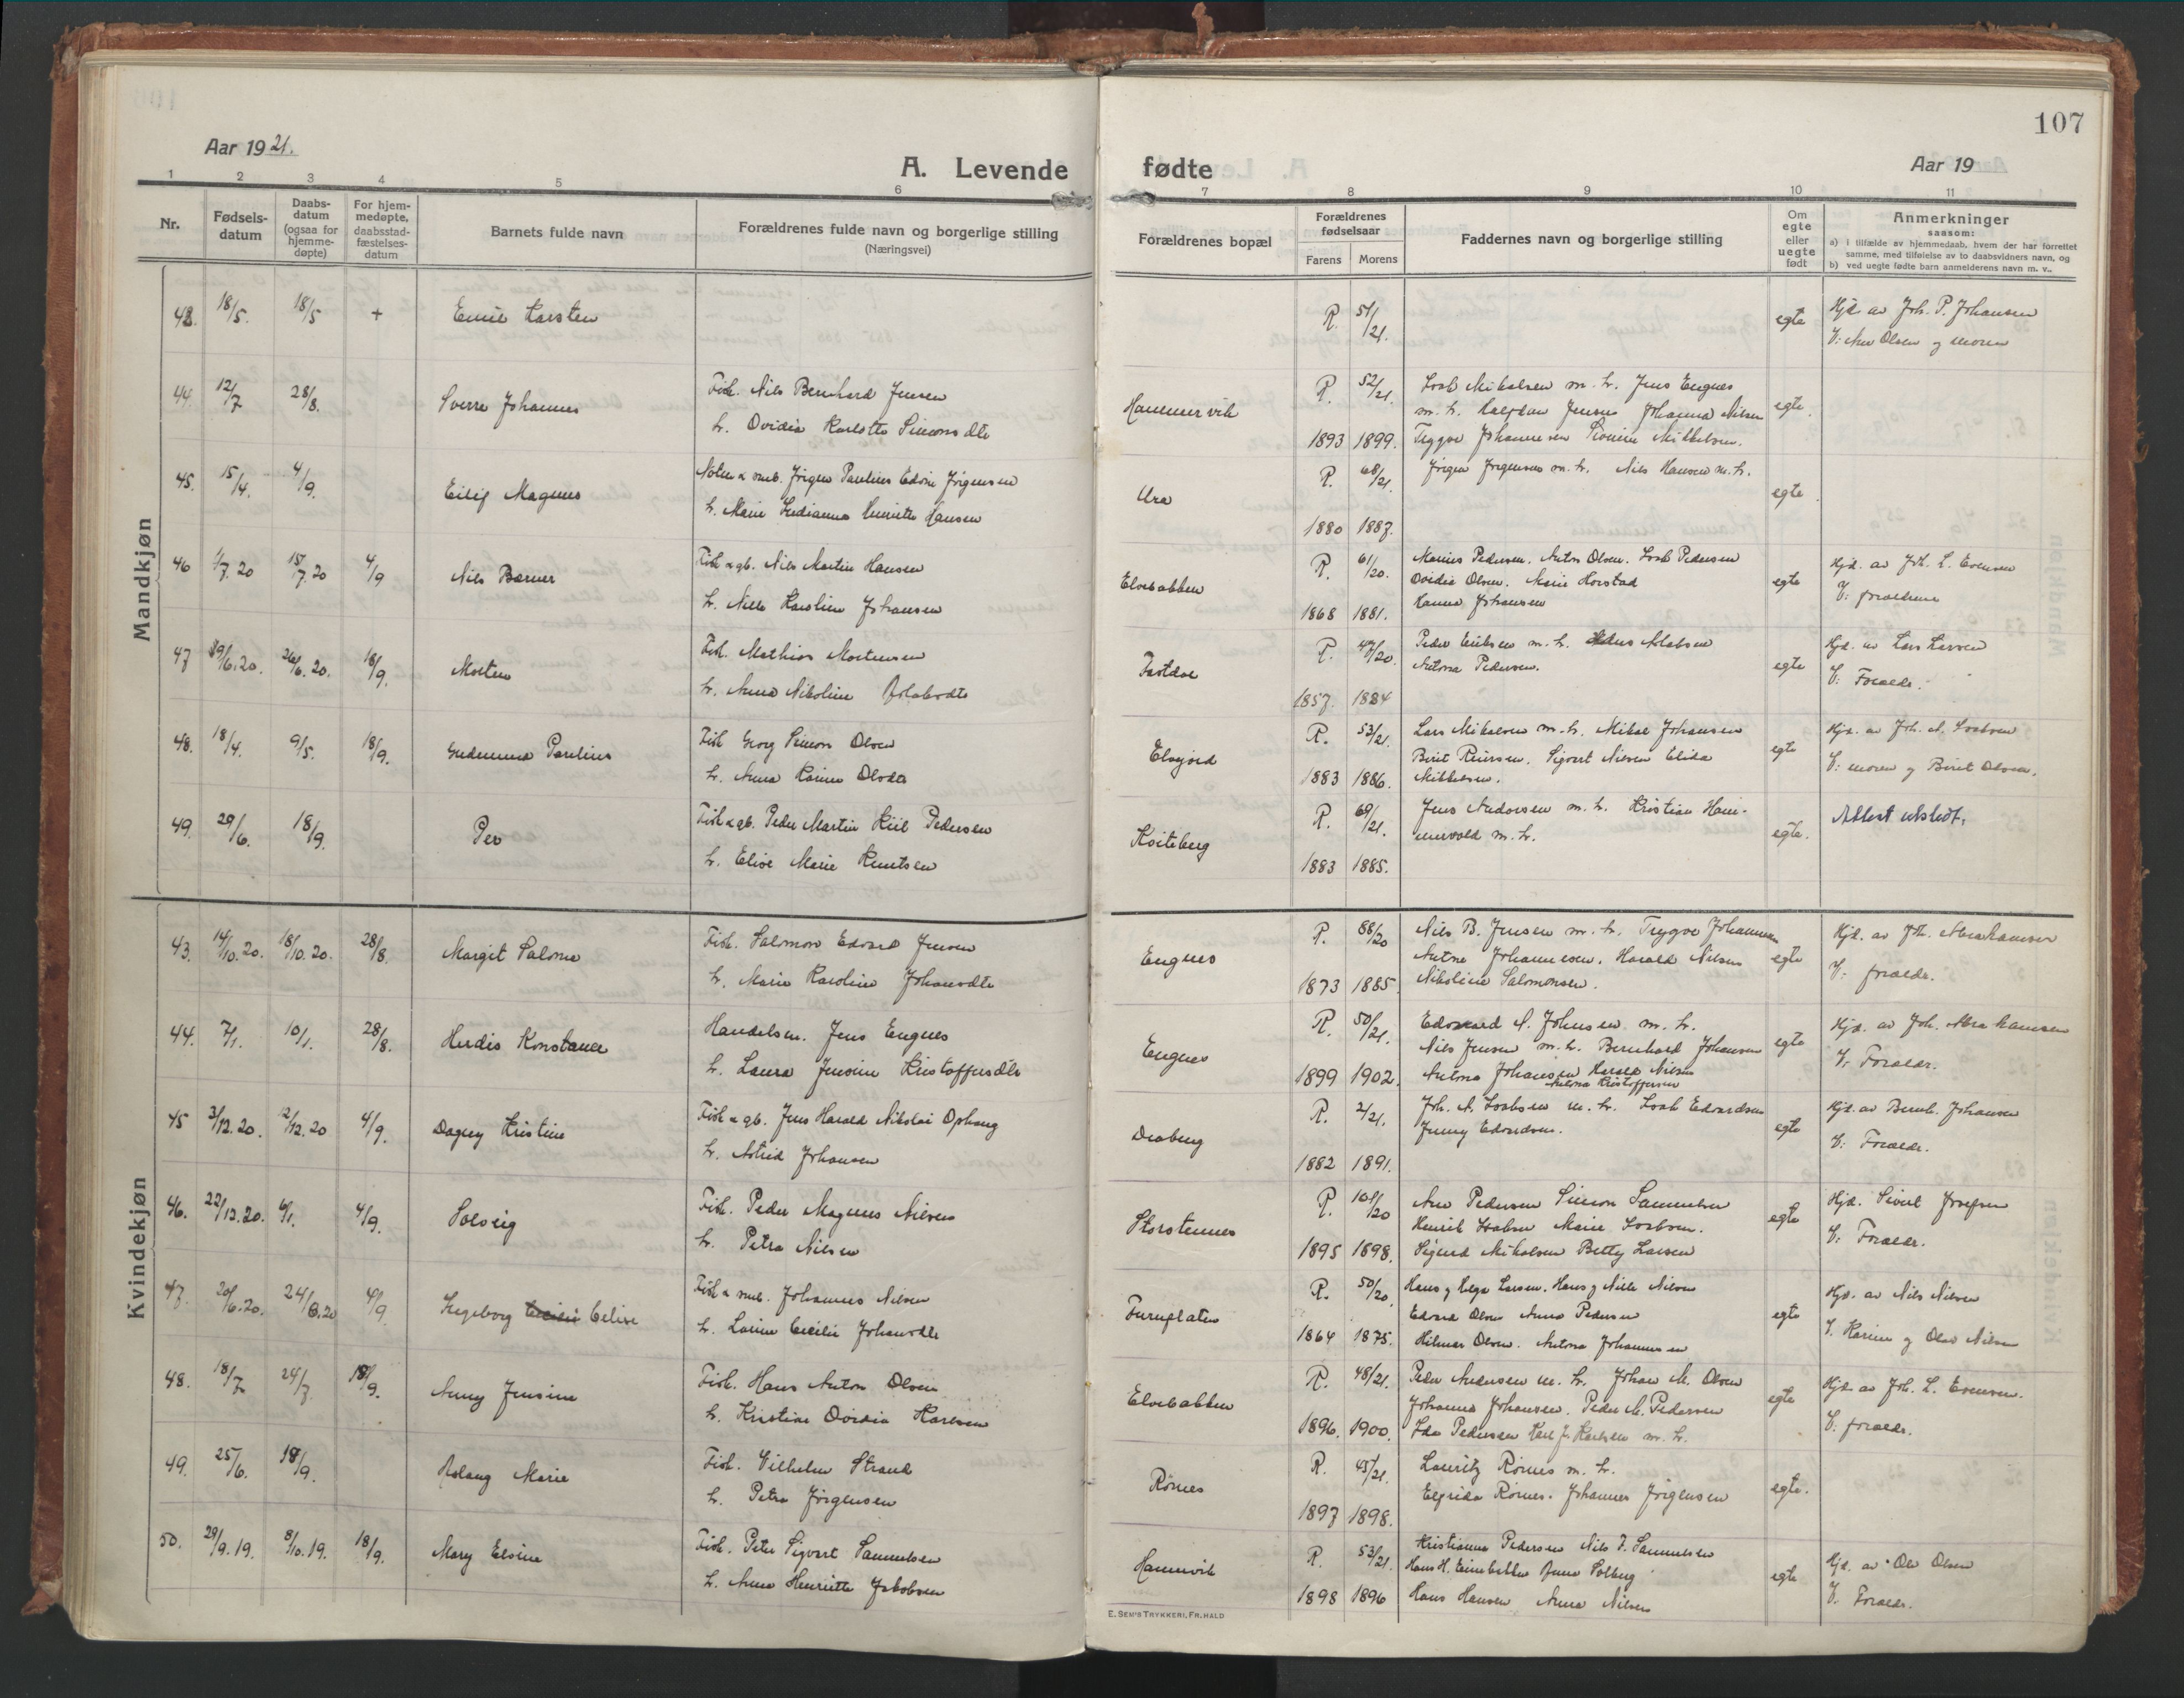 107
Aar 1921.
A. Levende fødte
Aar 19
1 2 3 4 5 6 7 8 9 10 11
Nr.
Fødselsdatum
Daabsdatum (ogsaa for hjemmedøpte)
For hjemmedøpte, daabsstadfæstelsesdatum
Barnets fulde navn
Forældrenes fulde navn og borgerlige stilling
(Næringsvei)
Forældrenes bopæl
Forældrenes fødselsaar
Farens Morens
Faddernes navn og borgerlige stilling
Om egte eller uegte født
Anmerkninger
saasom:
a) i tilfælde av hjemmedaab, hvem der har forrettet samme, med tilføielse av to daabsvidners navn, og
b) ved uegte fødte barn anmelderens navn m. v..
Mandkjøn
43. 18/5. 18/5 + Emil Karsten R. 51/21. egte Hjd. av Joh. P. Johansen
V: Ane Olsen og moren
44. 12/7 28/8. Sverre Johannes Fisk. Nils Bernhard Jensen Hammervik R. 52/21. Isak Mikalsen m. h. Jens Engnes egte.
h. Ovidia Karlotte Simonsdtr 1893 1899. m. h. Halfdan Jensen Johanna Nilsen
Trygve Johannesen Mikkelsen.
45. 15/4. 4/9. Eilif Magnus Jørgen Paulius Edvin Jørgensen Ura R. 68/21. Jørgen Jørgensen m. h. Nils Hansen m. h. egte
h. Marie Henriette Hansen 1880 1887.
46 1/7. 20 15/7. 20 4/9 Nils Barner Fisk & gb. Nils Martin Hansen Elvebakken R. 61/20. Marius Pedersen. Anton Olsen. Isak Pedersen egte Hjd. av Joh. L. Evensen
Ovidia Olsen. Marie Horstad V: forældrene
h. Nille Karoline Johansen 1868 1881. Hanna Johansen
47 19/6. 20. 26/6. 20. 18/9. Morten Fisk. Mathias Mortensen R. 47/20. Peder Eriksen m. h. egte Hjd. av Lars Larsen
h. Anna Nikoline 1857. 1884 Antona Pedersen. V: Forældr.
48. 18/4. 9/5. 18/9. Gudmund Paulius Fisk Georg Simon Olsen Elvejord R. 53/21. Lars Mikalsen m. h. Mikal Johansen egte Hjd. av Joh. A. Isaksen
h. Anna Olsdtr 1883 1886. Berit Reiersen. Sigvart Nilsen Elida Mikkelsen. V: moren og Berit Olsen.
49. 29/6. 18/9. Per Fisk & gb. Peder Martin Kiil Pedersen Kviteberg R. 69/21. Jens Andersen m. h. Kristian Hammervold m. h. egte. Attest utstedt.
h. Elise Marie Knutsen 1883 1885.
Kvindekjøn
43. 14/10. 20. 18/10. 20. 28/8. Margit Salome Fisk. Salomon Edvard Jensen Engnes R. 88/20 Nils B. Jensen m. h. Trygve Johannesen egte Hjd. av Joh. Abrahamsen
h. Marie Karoline Johansdtr 1873 1885. Antona Johannesen. Harald Nilsen V: forældr.
Nikoline Salomonsen.
44. 7/1. 10/1. 28/8. Herdis Konstance Handelsm. Jens Engnes Engnes R. 50/21. Edvard A. Johnsen m. h. egte Hjd. av Joh. Abrahamsen
Nils Jensen m. h. Bernhard Johansen
h. Laura Jensine Kristoffersdtr 1899 1902. Antona Johansen Harald Nilsen V: Forældr.
Antona Kristoffersen
45 3/12. 20. 12/12. 20 4/9. Dagny Kristine Fisk & gb. Jens Harald Nikolai Ophaug Draberg R. 2/21. Joh. A. Isaksen m. h. Isak Edvardsen egte Hjd. av Bernh. Johansen
h. Astrid Johansen 1882 1891. Jenny Edvardsen. V: Forældr.
46. 22/12. 20. 6/1. 4/9. Solveig Fisk. Peder Magnus Nilsen Storstennes R. 101/20 Ane Pedersen Simon Samuelsen egte Hjd. Sivert Josefsen
Henrik Isaksen Marie Isaksen.
h. Petra Nilsen 1895 1898. Sigurd Mikalsen Betty Larsen V: Forældr.
47. 20/6. 20. 24/8. 20 4/9 Ingeborg Celise Fisk & smb. Johannes Nilsen Furuflaten R. 50/20 Hans og Helga Larsen. Hans og Nille Nilsen egte Hjd. av Nils Nilsen
Edvard Olsen Anna Pedersen
h. Lovise Cecilie Johansdtr 1864 1875. Hilmar Olsen. Antona Johannesen V. Karine og Olav Nilsen
48. 18/7. 24/7. 18/9. Anny Jensine Fisk. Hans Anton Olsen Elvebakken R. 48/21. Peder Andersen m. h. Johan M. Olsen egte Hjd. av Joh. L. Evensen.
Johanna Johansen. Peder M. Pedersen
h. Kristine Ovidia Karlsen 1896. 1900. Ida Pedersen Karl J. Karlsen m. h. V: forældr.
49. 25/6. 18/9. Aslaug Marie Fisk. Vilhelm Strand Rørnes R. 45/21. Lauritz Rørnes m. h. egte.
h. Petra Jørgensen 1897 1898. Elfrida Rørnes. Johannes Jørgensen
50. 29/9. 19. 8/10. 19. 18/9. Mary Elvine Fisk. Peter Sigvart Samuelsen Hamnvik R. 53/21. Kristianna Pedersen Nils J. Samuelsen egte Hjd. av Ole Olsen
Hans H. Einebakken Anna Solberg
h. Anna Henriette Jakobsen 1898 1896 Hans Hansen Anna Nilsen V. Forældr.
E. SEM'S TRYKKERI, FR. HALD